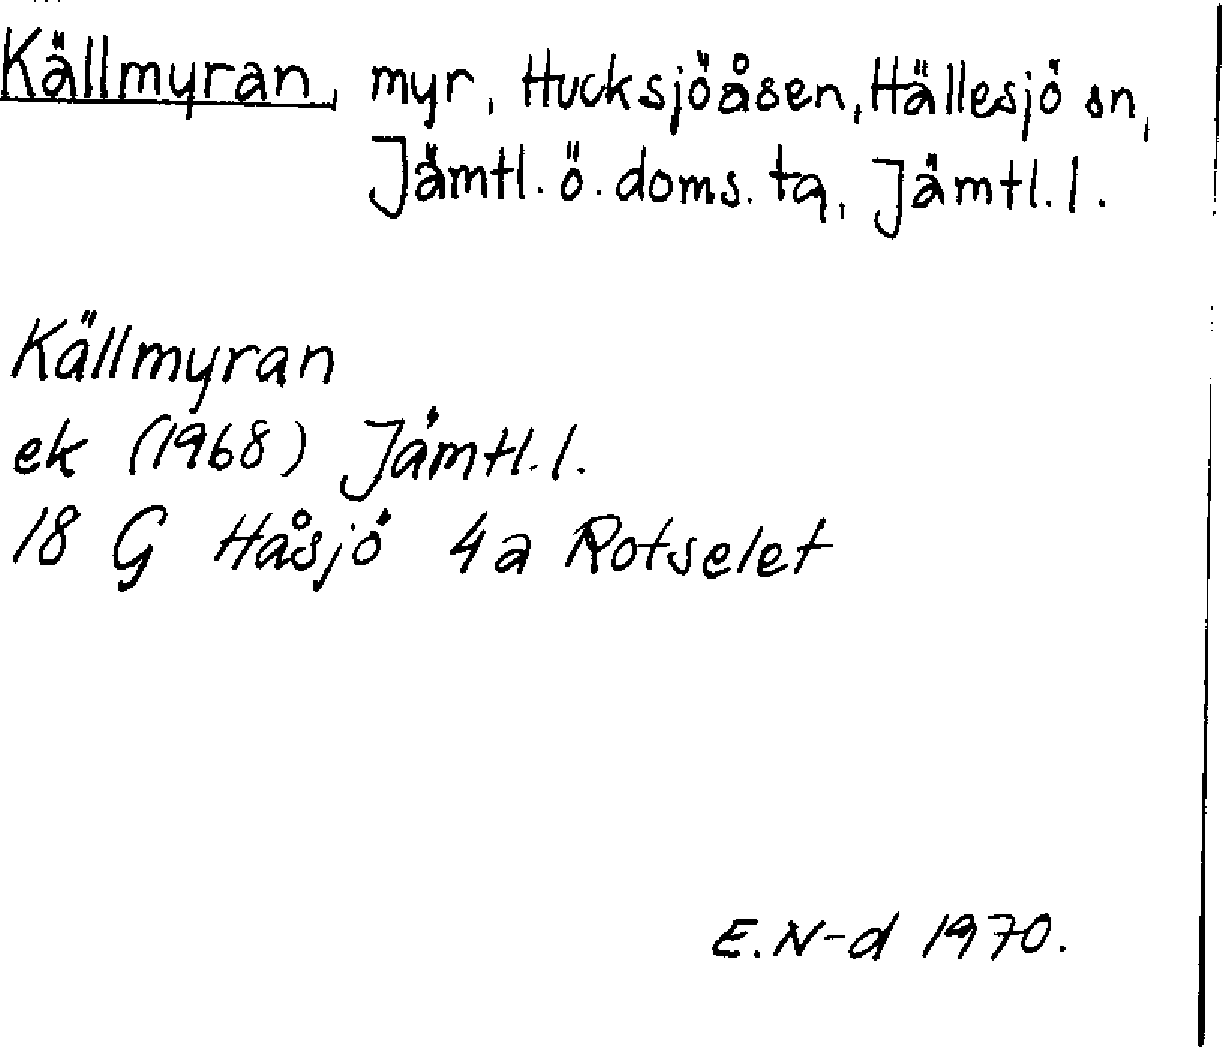 Källmyran, myr, Hucksjöåsen, Hällesjö sn,
Jämtl. ö. doms. tg, Jämtl. l.
Källmyran
ek (1968) Jämtl. l.
18 G Håsjö 4a Rotselet
E. N-d 1970.